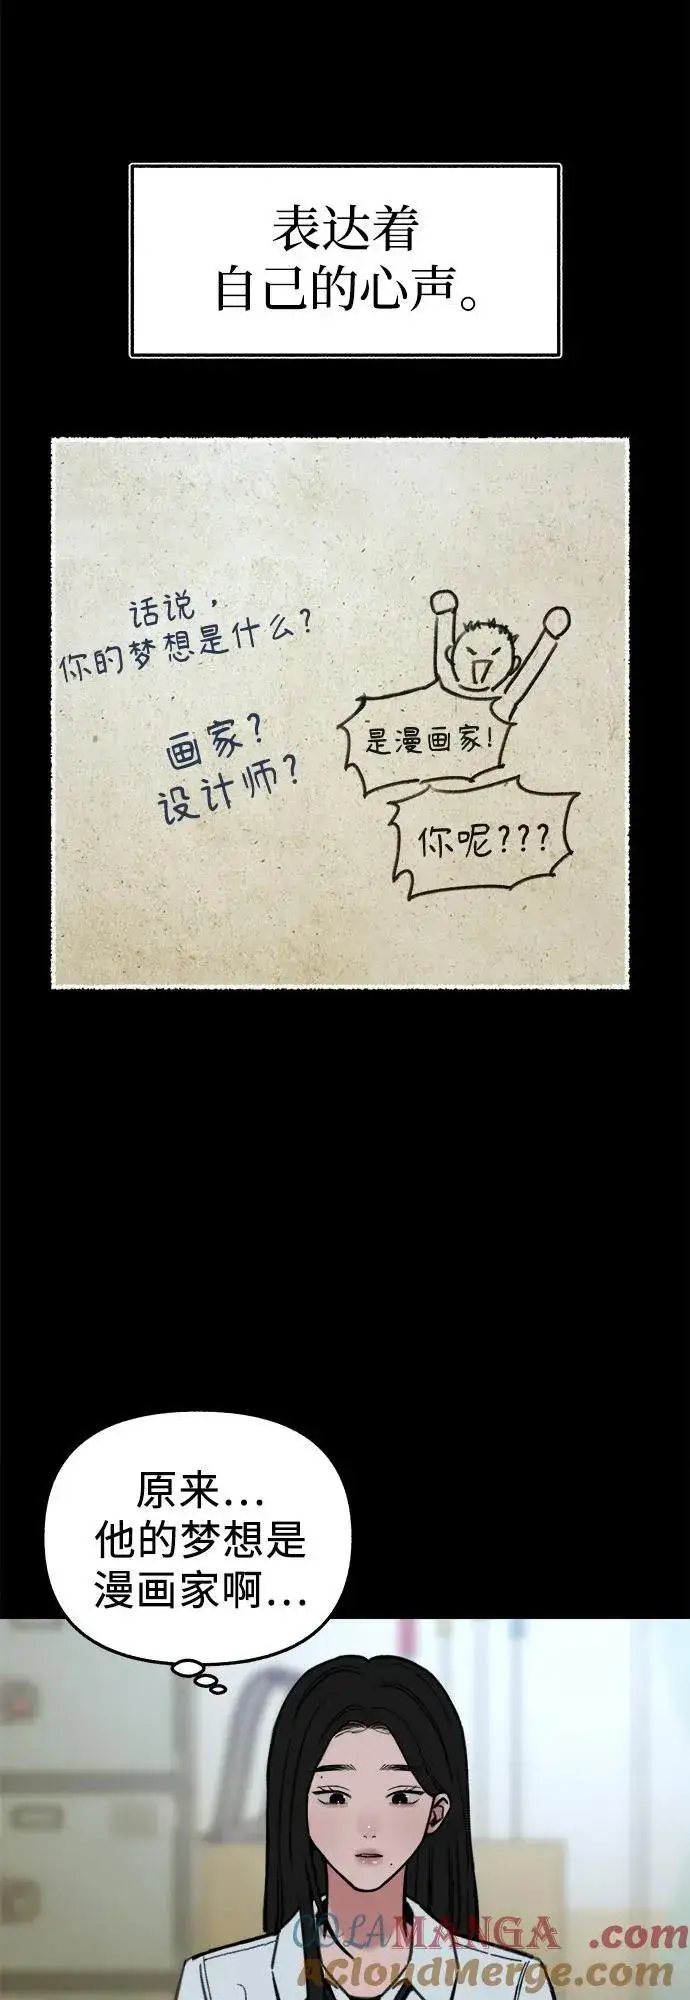 表达着
自己的心声。
话说，
你的梦想是什么?
画家?
设计师?
是漫画家!
你呢???
原来...
他的梦想是
漫画家啊...
COLAMANGA.com
ACloudMerge.com